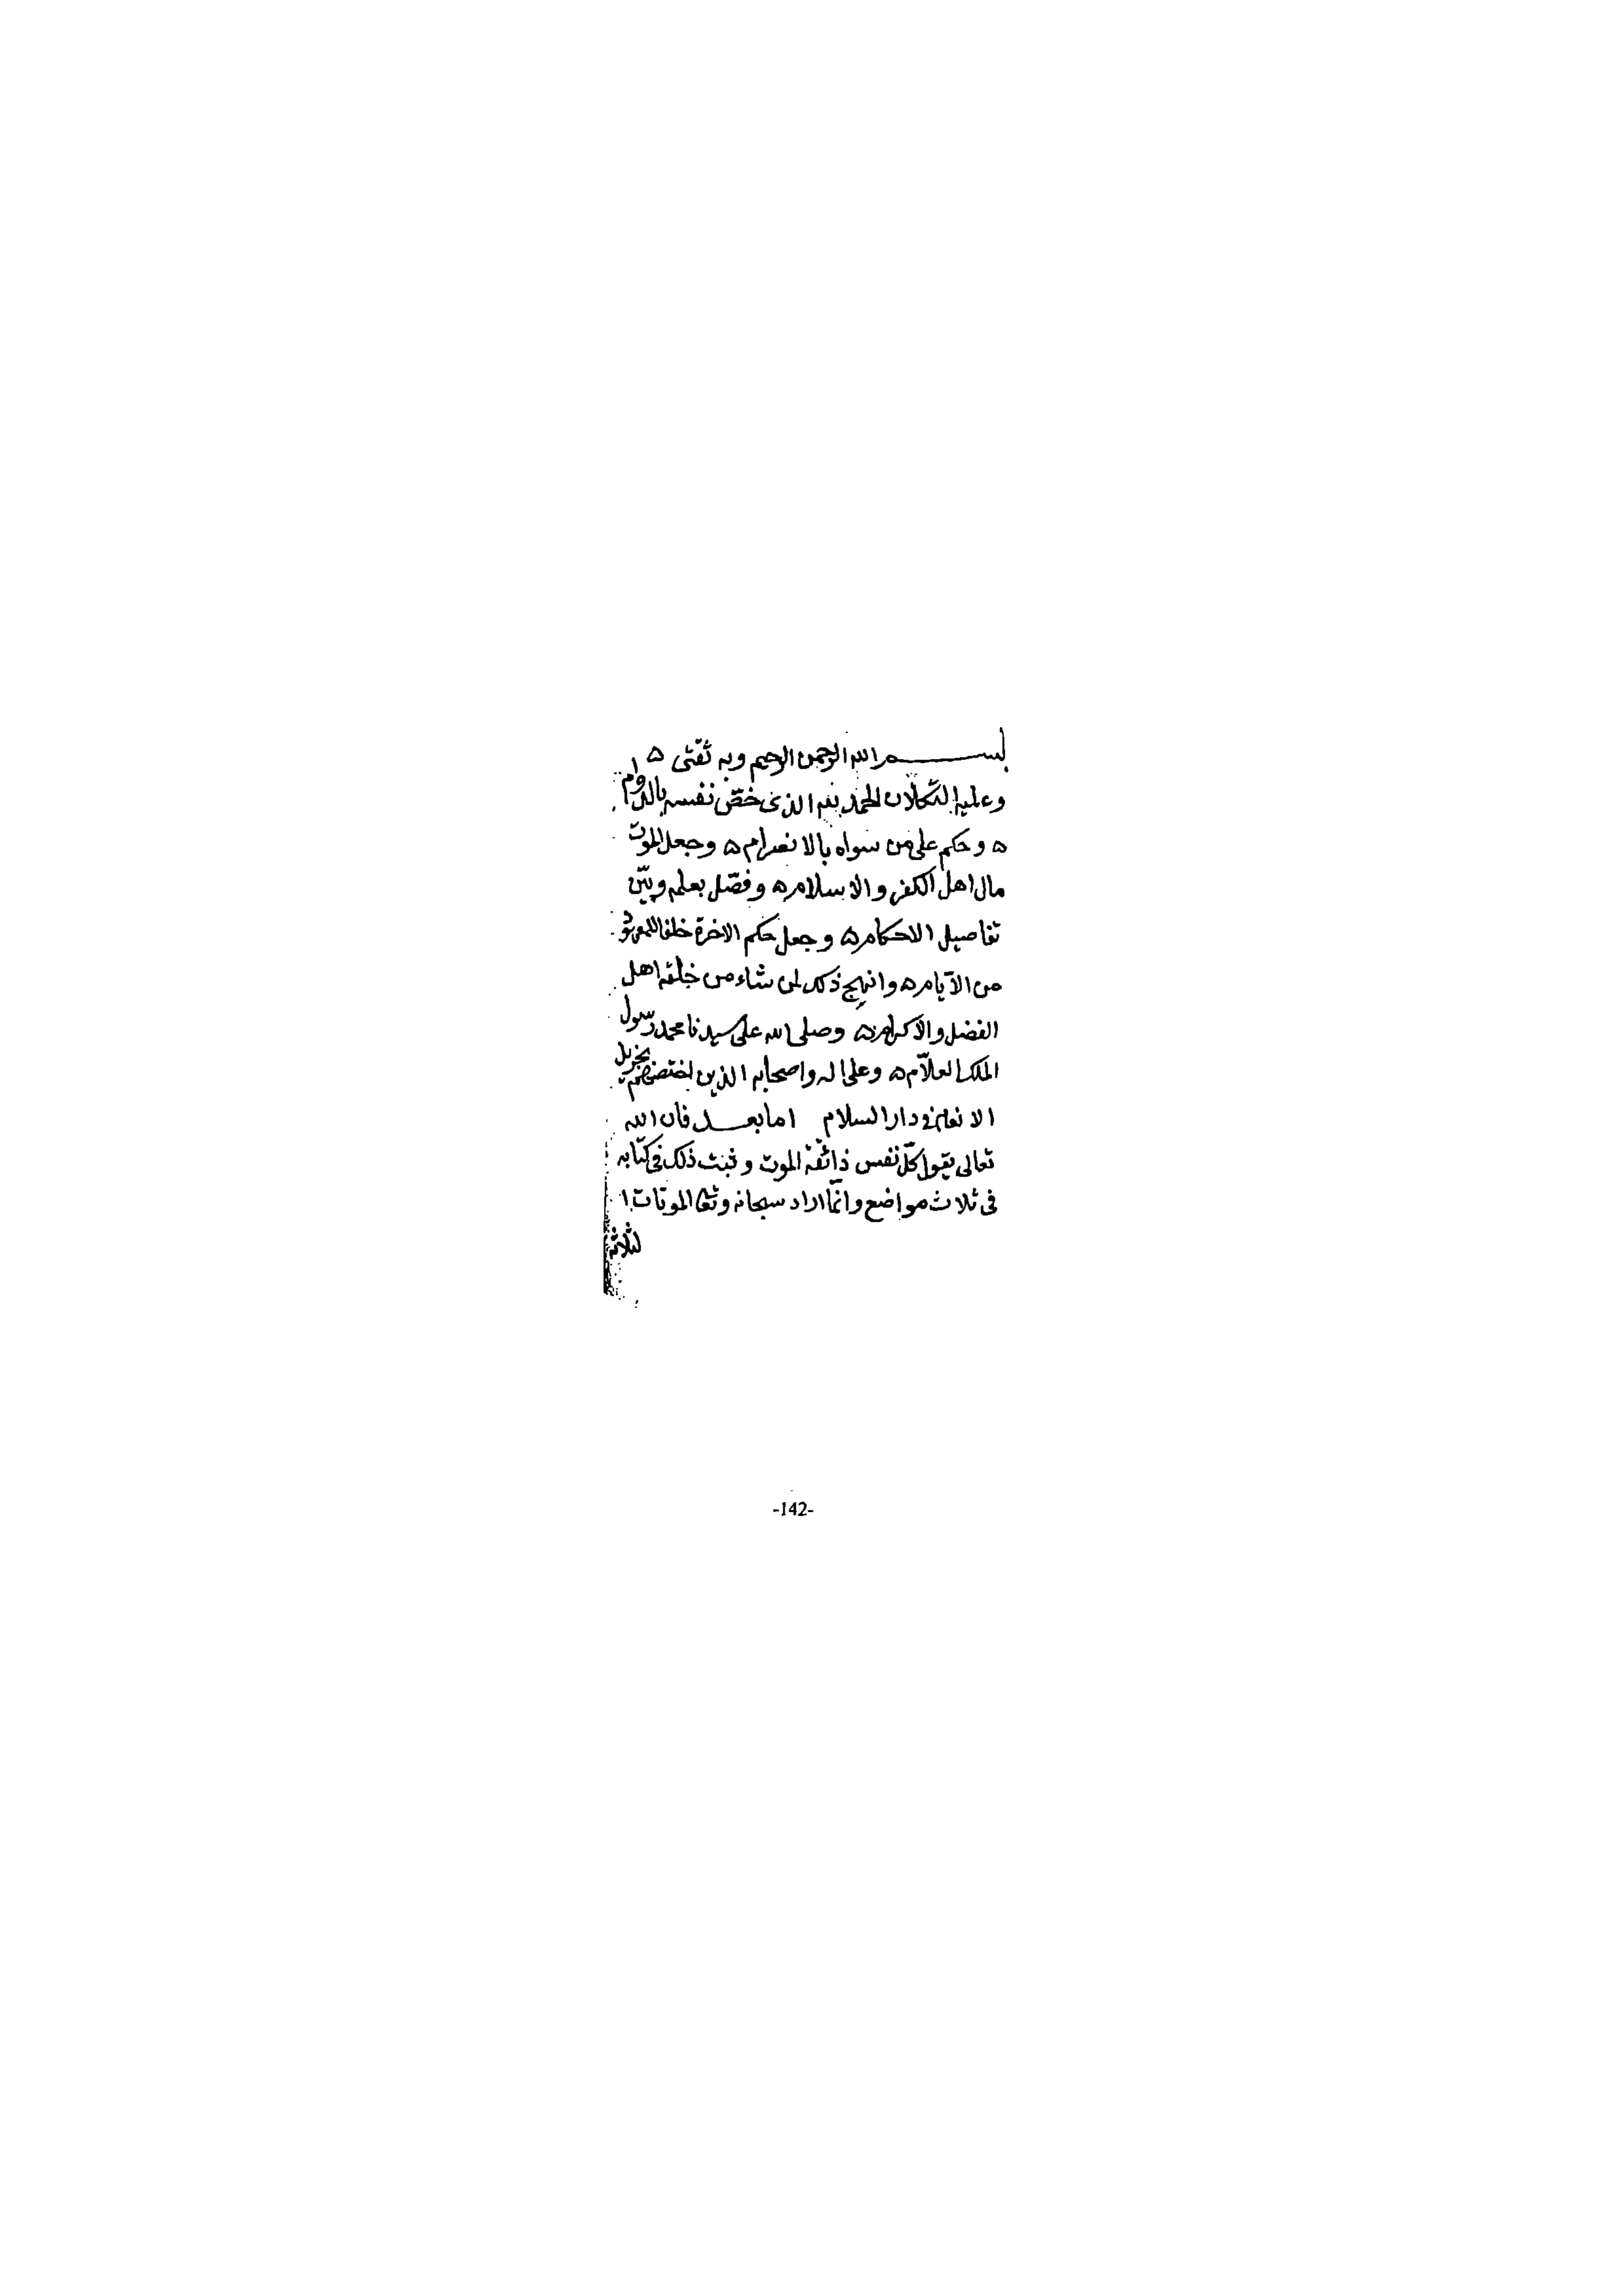 بسم الله الرحمن الرحيم وبه ثقتى ه
وعليه التكلان الحمد لله الذى خصّ نفسه بالدوام
ه وحكم على من سواه بالانصرام ه وجعل الموت
مال اهل الكفر والاسلام ه وفصّل بعلمه وبيّن
تفاصيل الاحكام ه وجعل حكم الاخرة خلفا
من الايام ه وانهج ذلك لمن شاء من خلقه اهل
الفضل والاكرام ه وصلى الله على سيدنا محمد رسول
الملك العلّام ه وعلى اله واصحابه الذين اختصهم بجزيل
الانعام فى دار السلام اما بعد فان الله
تعالى يقول كلّ نفس ذائقة الموت وثبت ذلك فى كتابه
فى ثلاث مواضع وانّما اراد سبحانه وتعا الموتات ا
لثلاثة
-142-